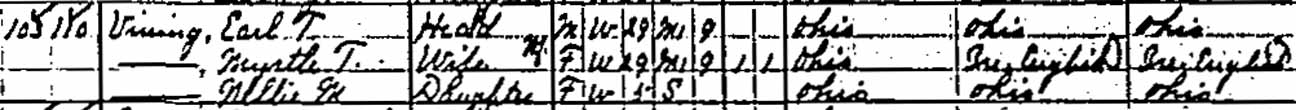 105 110 Vining, Earl T. Head M W 29 M1 9 Ohio Ohio Ohio
———, Myrtle T. Wife F W 29 M1 9 1 1 Ohio Ire. English Ire. English
——— Nellie M Daughter F W S Ohio Ohio Ohio